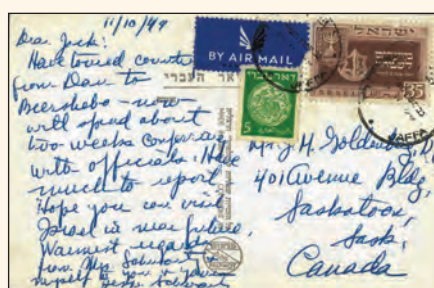 11/10/49
Dear Jack:
Have toured country
from Dan to
Beersheba - now
will spend about
two weeks conferring
with officials. Have
much to report
Hope you can visit
Israel in near future.
Warmest regards
from Mrs. Schwartz &
myself to you &
BY AIR MAIL
דאר עברי
5
ישראל
35
JAFFA
Mr. J. H. Goldenberg,
401 Avenue Bldg,
Saskatoon,
Sask,
Canada